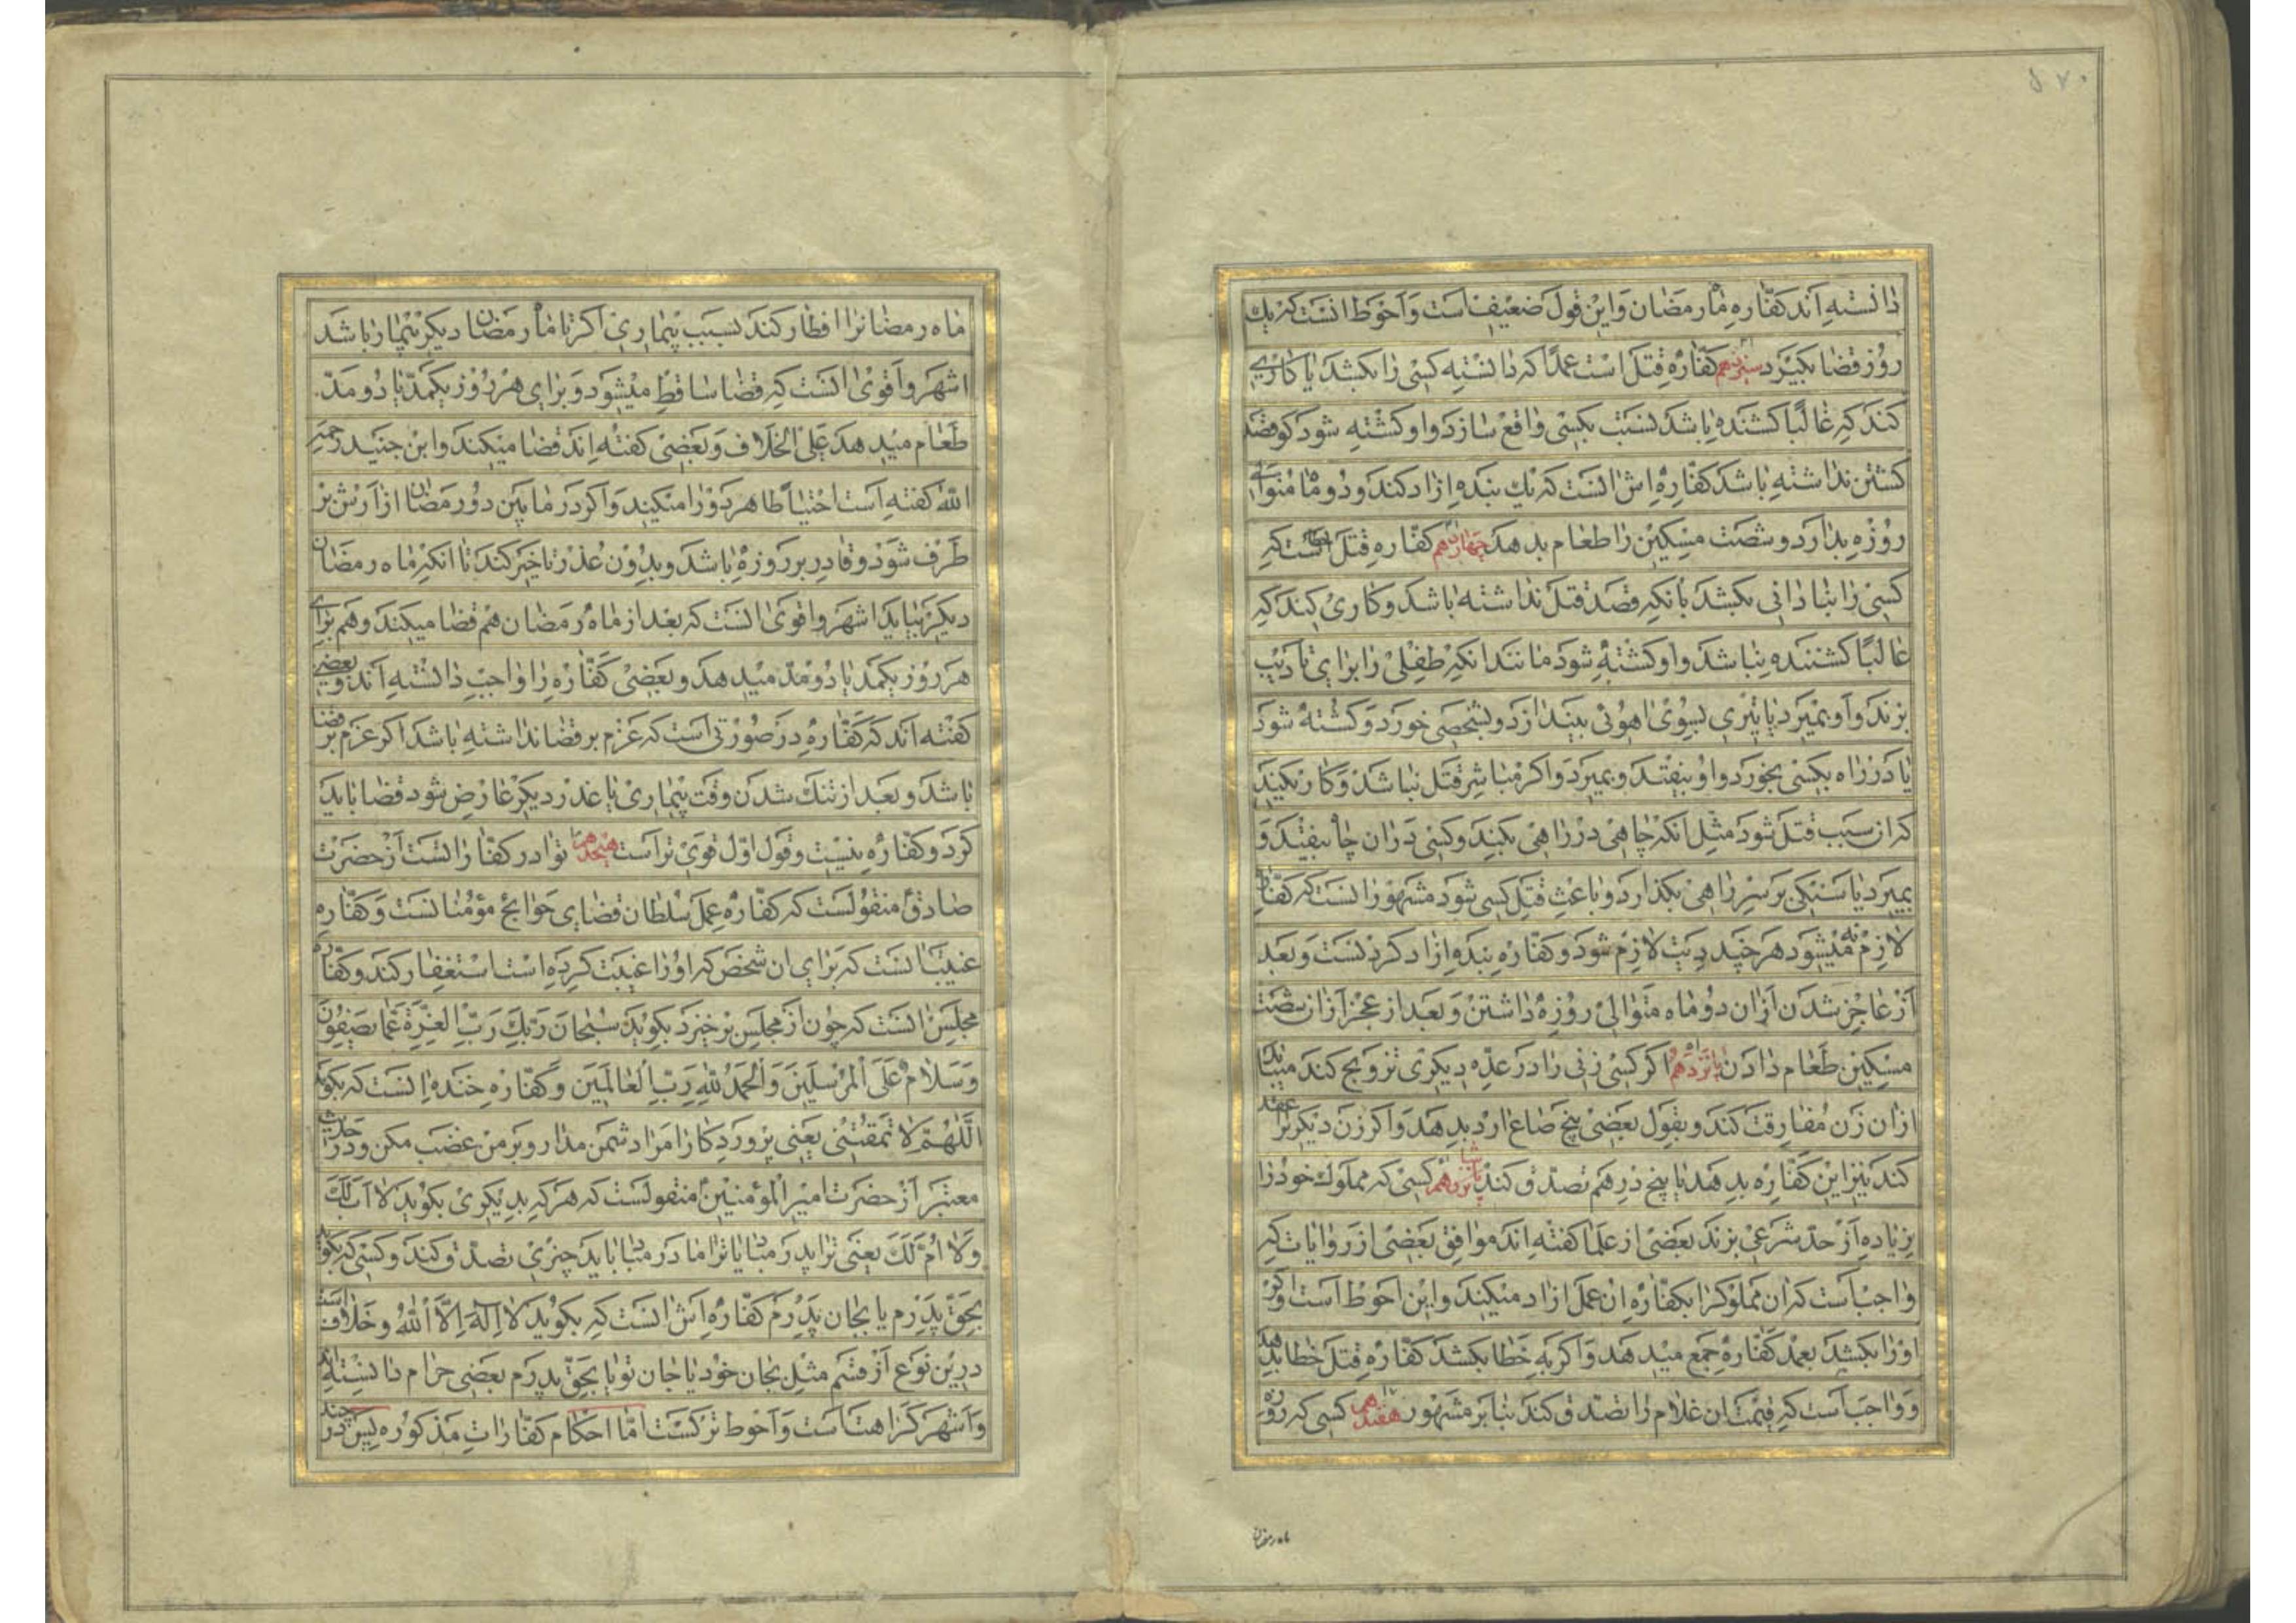 دانسته اند کفاره ماه رمضان و این قول ضعیف است و احوط انست که یک
روز قضا بکیرد سیزدهم کفاره قتل است عمدا که دانسته کسی را بکشد یا کاری
کند که غالبا کشنده باشد نسبت بکسی واقع سازد و او کشته شود کو قصد
کشتن نداشته باشد کفاره اش انست که یک بنده ازاد کند و دو ماه متوالی
روزه بدارد و شصت مسکین را طعام بدهد چهاردهم کفاره قتل خطاست که
کسی را بنادانی بکشد بانکه قصد قتل نداشته باشد و کاری کند که
غالبا کشننده نباشد و او کشته شود مانند انکه طفلی را برای تادیب
بزند و او بمیرد یا تیری بسوی اهوئی بیندازد و بشخصی خورد و کشته شود
یا در راه بکسی بخورد و او بیفتد و بمیرد و اکر مباشر قتل نباشد و کاری کند
که ان سبب قتل شود مثل انکه چاهی در راهی بکند و کسی در ان چاه بیفتد و
بمیرد یا سنکی بر سر راهی بکذارد و باعث قتل کسی شود مشهور انست که کفاره
لازم نمیشود هر چند دیت لازم شود و کفاره بنده ازاد کردنست و بعد
از عاجز شدن از ان دو ماه متوالی روزه داشتن و بعد از عجز از ان شصت
مسکین طعام دادن پانزدهم اکر کسی زنی را در عده دیکری تزویج کند میباید
از ان زن مفارقت کند و بقول بعضی پنج صاع ارد بدهد و اکر زن دیکر را عقد
کند نیز این کفاره بدهد یا پنج درهم تصدق کند شانزدهم کسی که مملوک خود را
بزیاده از حد شرعی بزند بعضی از علما کفته اند موافق بعضی از روایات که
واجبست که ان مملوکرا بکفاره ان عمل ازاد میکند و این احوط است و اکر
او را بکشد بعمد کفاره جمع میدهد و اکر به خطا بکشد کفاره قتل خطا بدهد
و واجب است که قیمت ان غلام را تصدق کند بنابر مشهور هفدهم کسی که روزه
ماه رمضان
ماه رمضانرا افطار کند بسبب بیماری اکر تا ماه رمضان دیکر بیمار باشد
اشهر و اقوی انست که قضا ساقط میشود و برای هر روز یکمد یا دو مد
طعام میدهد علی الخلاف و بعضی کفته اند قضا میکند و ابن جنید رحمه
الله کفته است احتیاطا هر دو را میکند و اکر در مابین دو رمضان ازارش بر
طرف شود و قادر بر روزه باشد و بدون عذر تاخیر کند تا انکه ماه رمضان
دیکر بیاید اشهر و اقوی انست که بعد از ماه رمضان هم قضا میکند و هم برای
هر روز یکمد یا دو مد میدهد و بعضی کفاره را واجب دانسته اند و بعضی
کفته اند که کفاره در صورتی است که عزم بر قضا نداشته باشد اکر عزم بر قضا
باشد و بعد از تنک شدن وقت بیماری یا عذر دیکر عارض شود قضا باید
کرد و کفاره نیست و قول اول قوی تر است هیجدهم نوادر کفاراتست از حضرت
صادق منقولست که کفاره عمل سلطان قضای حوایج مؤمنانست و کفاره
غیبت انست که برای ان شخص که او را غیبت کرده است استغفار کند و کفاره
مجلس انست که چون از مجلس برخیزد بکوید سبحان ربک رب العزة عما یصفون
و سلام علی المرسلین و الحمد لله رب العالمین و کفاره خنده انست که بکوید
اللهم لا تمقتنی یعنی پروردکارا مرا دشمن مدار و بر من غضب مکن و در حدیث
معتبر از حضرت امیر المؤمنین منقولست که هر که بدیکری بکوید لا اب لک
و لا ام لک یعنی ترا پدر مباد یا ترا مادر مباد باید چیزی تصدق کند و کسی که بکوید
بحق پدرم یا بجان پدرم کفاره اش انست که بکوید لا اله الا الله و خلاف است
درین نوع از قسم مثل بجان خود یا جان تو یا بحق پدرم بعضی حرام دانسته اند
و اشهر کراهتست و احوط ترکست اما احکام کفارات مذکوره پس در چند